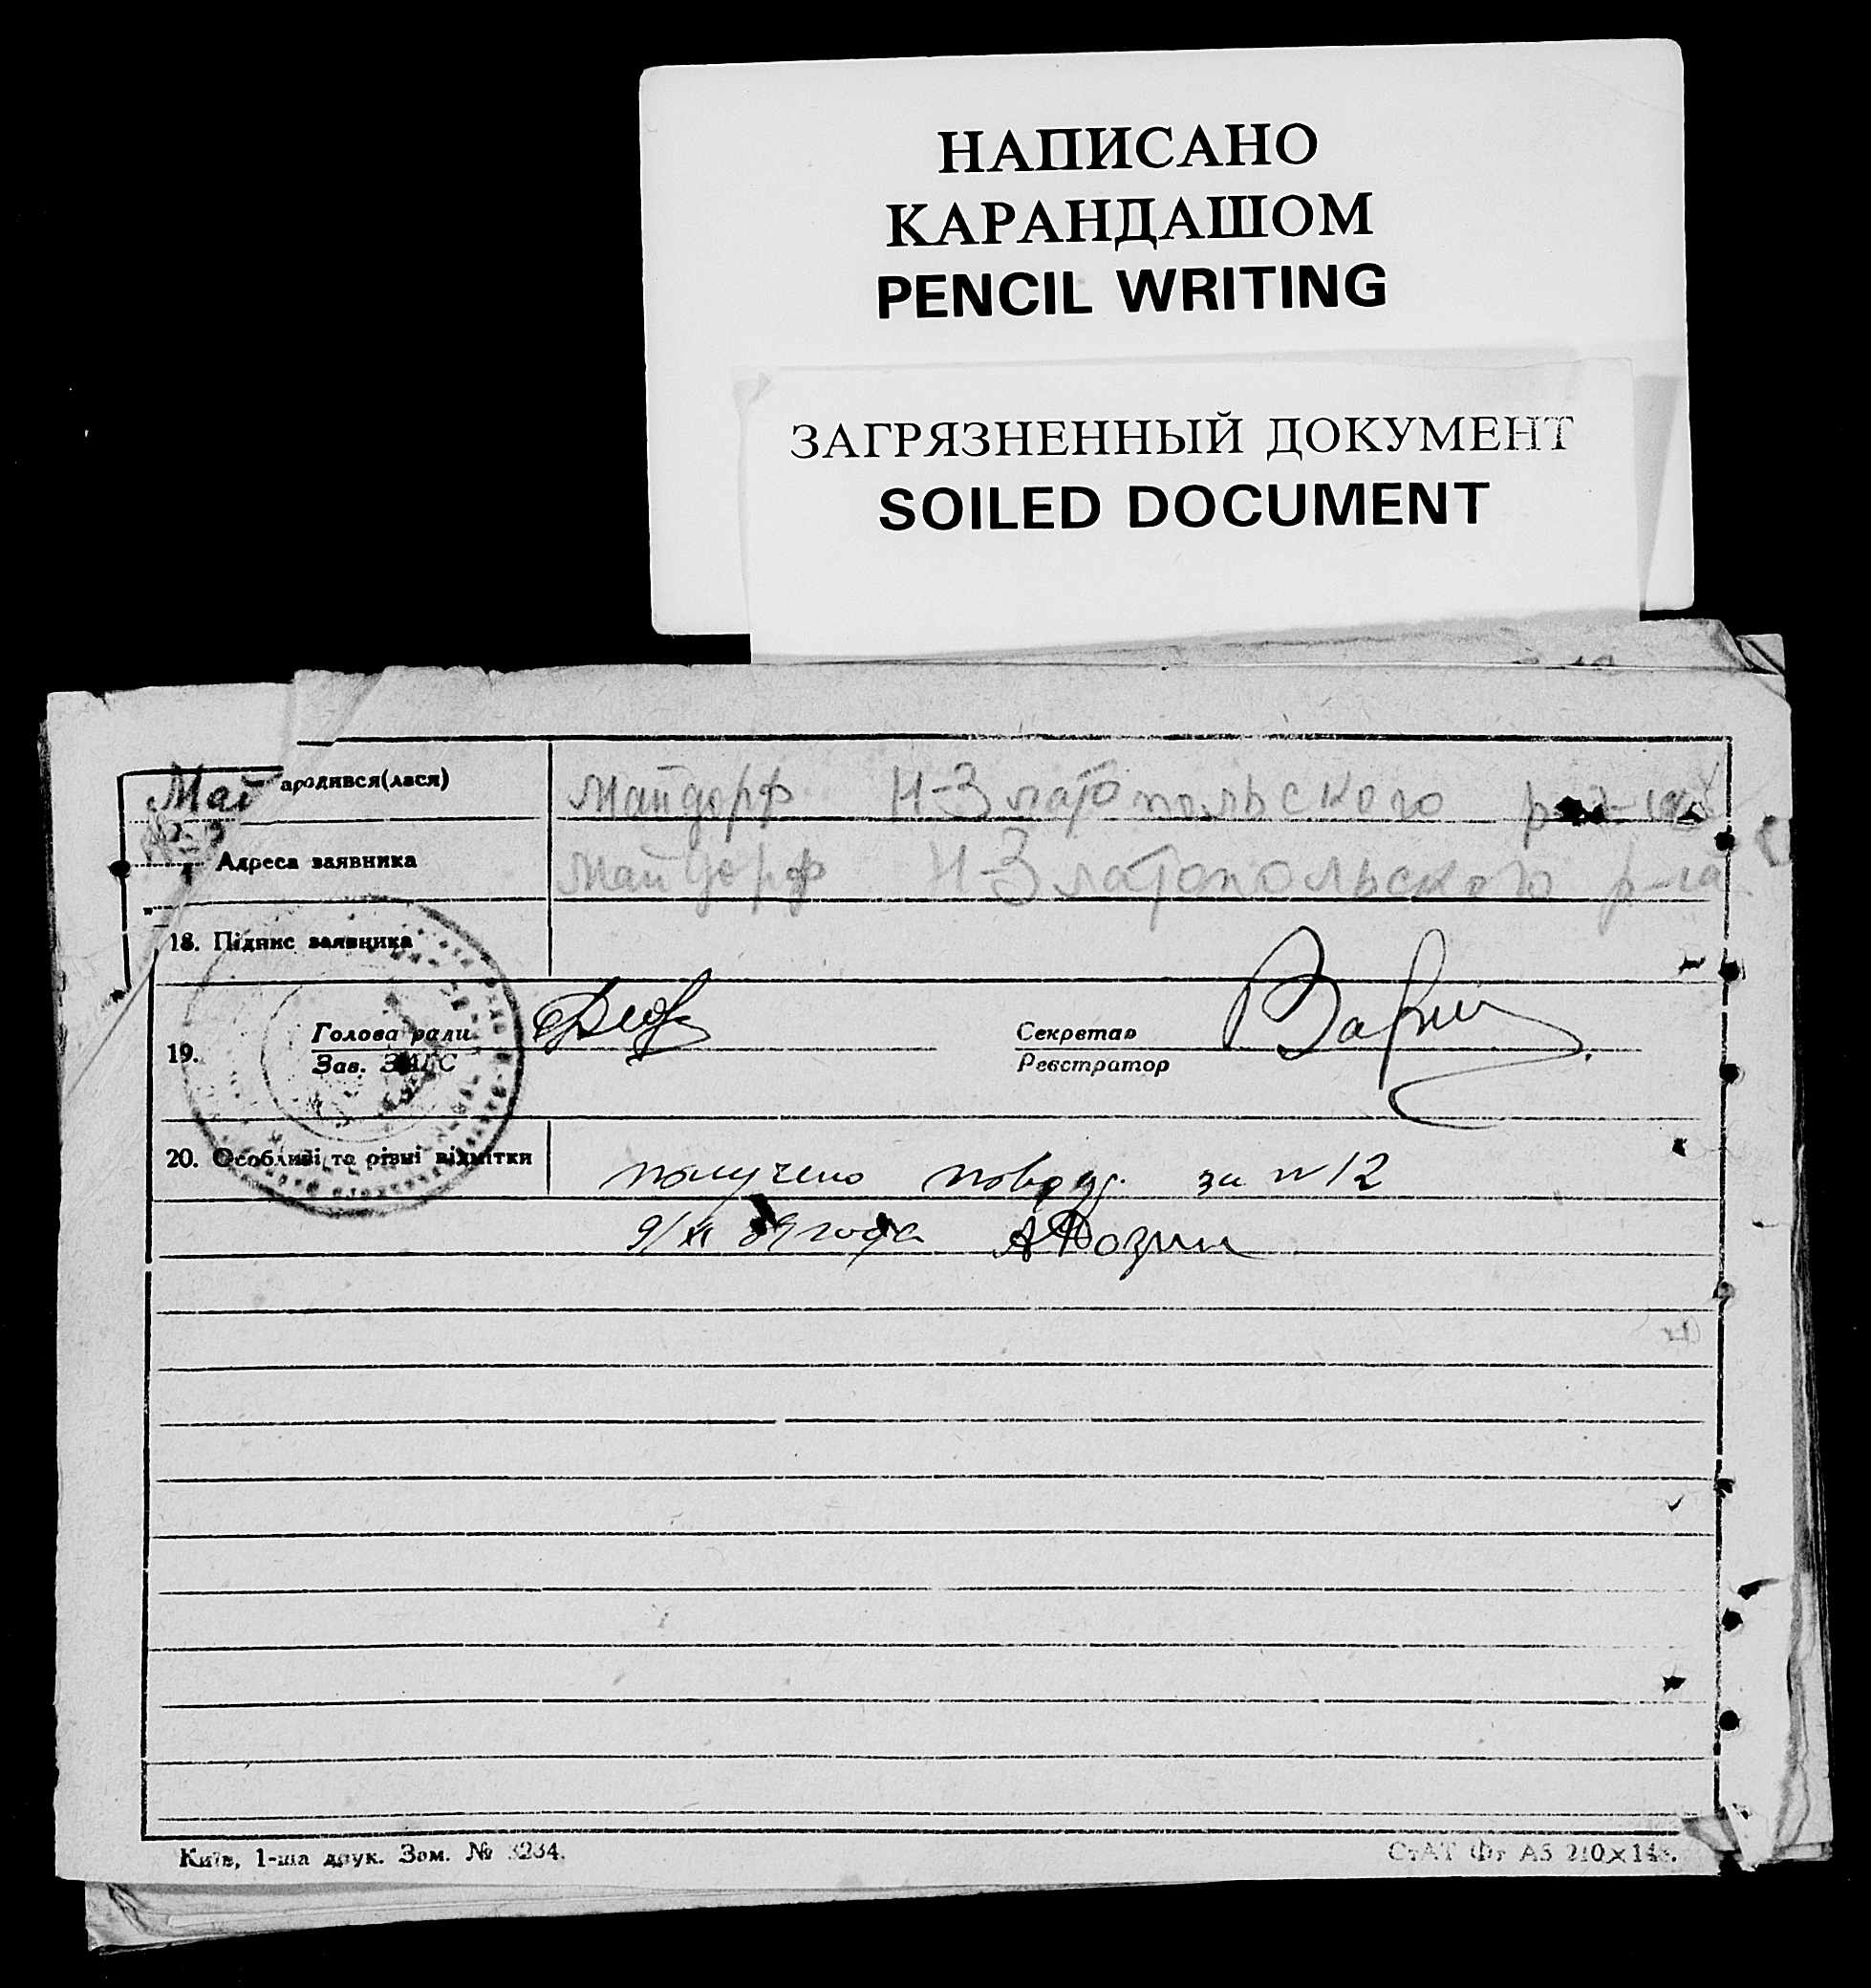 НАПИСАНО
КАРАНДАШОМ
PENCIL WRITING
ЗАГРЯЗНЕННЫЙ ДОКУМЕНТ
SOILED DOCUMENT
Май ародився(лася) Майдорф Н-Златопольского
Адреса заявника Майдорф Н-Златопольского р-на
18. Підпис заявника
19. Голова ради Секретар
Зав. ЗАГС Реєстратор
20. Особливі та різні відмітки получено за №12
9/XI 39 года
Київ, 1-ша друк. Зам. № 3234. СтАТ Фт А5 210×148.